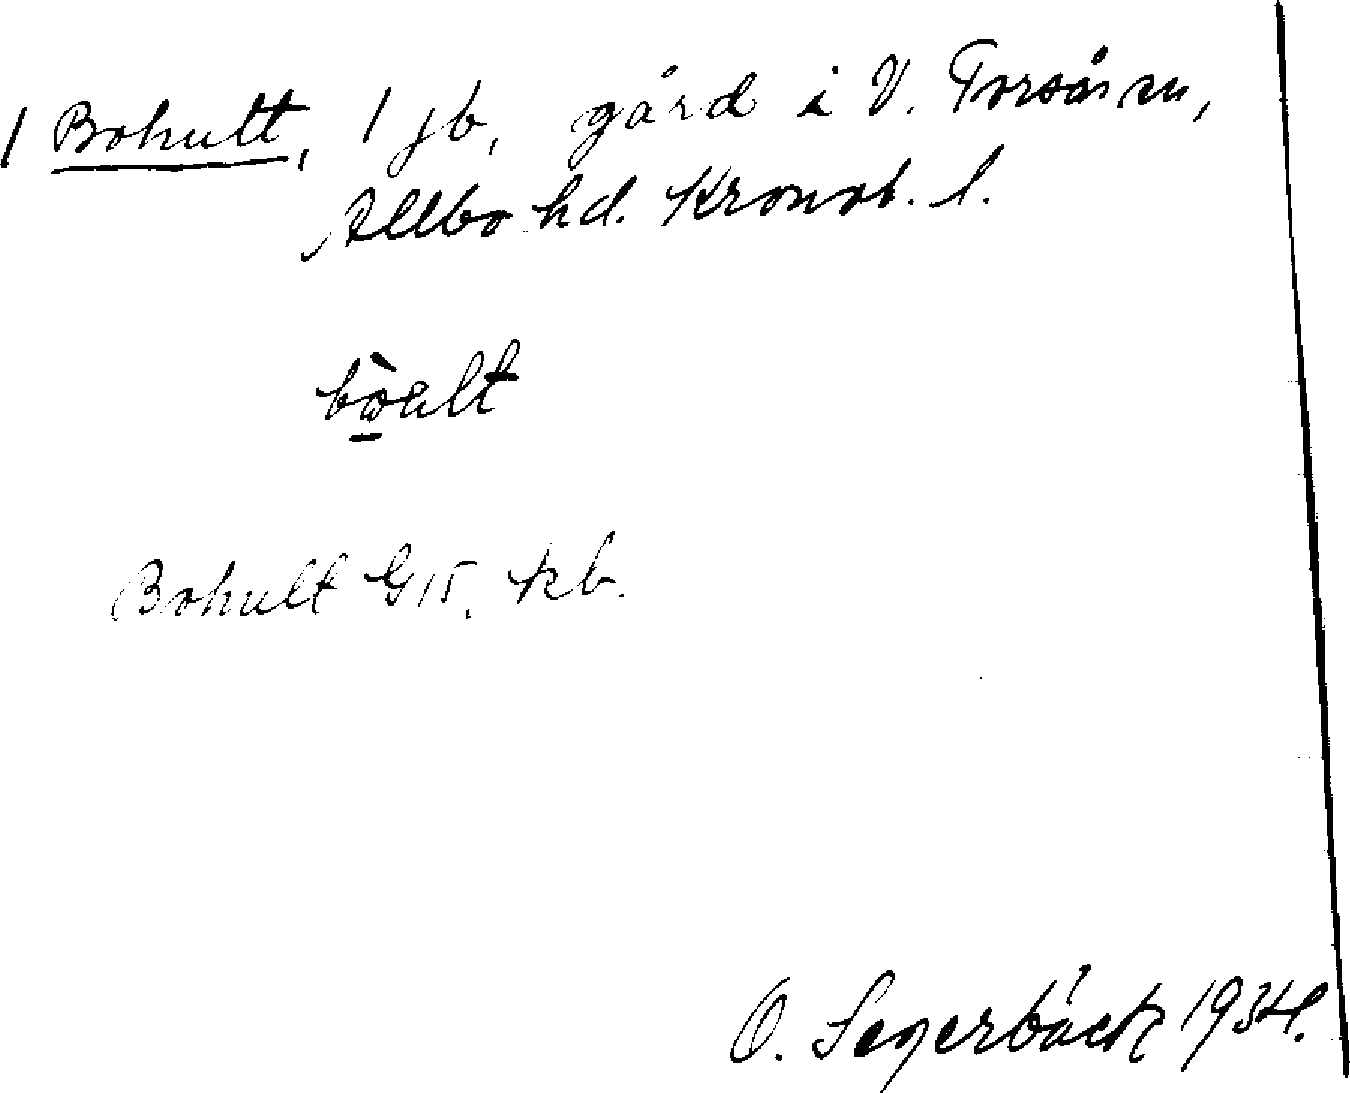 1 Bohult, 1 jb, gård i V. Torsås sn,
Allbo hd. Kronob. l.
bò̱ult
Bohult G15. kb.
O. Segerbäck 1934.